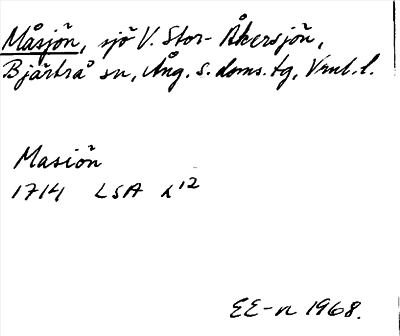 Måsjön, sjö V. Stor-Åkersjön,
Bjärtrå sn, Ång. s. doms. tg, Vnrl. l.
Masiön
1714 LSA k12
EE-n 1968.